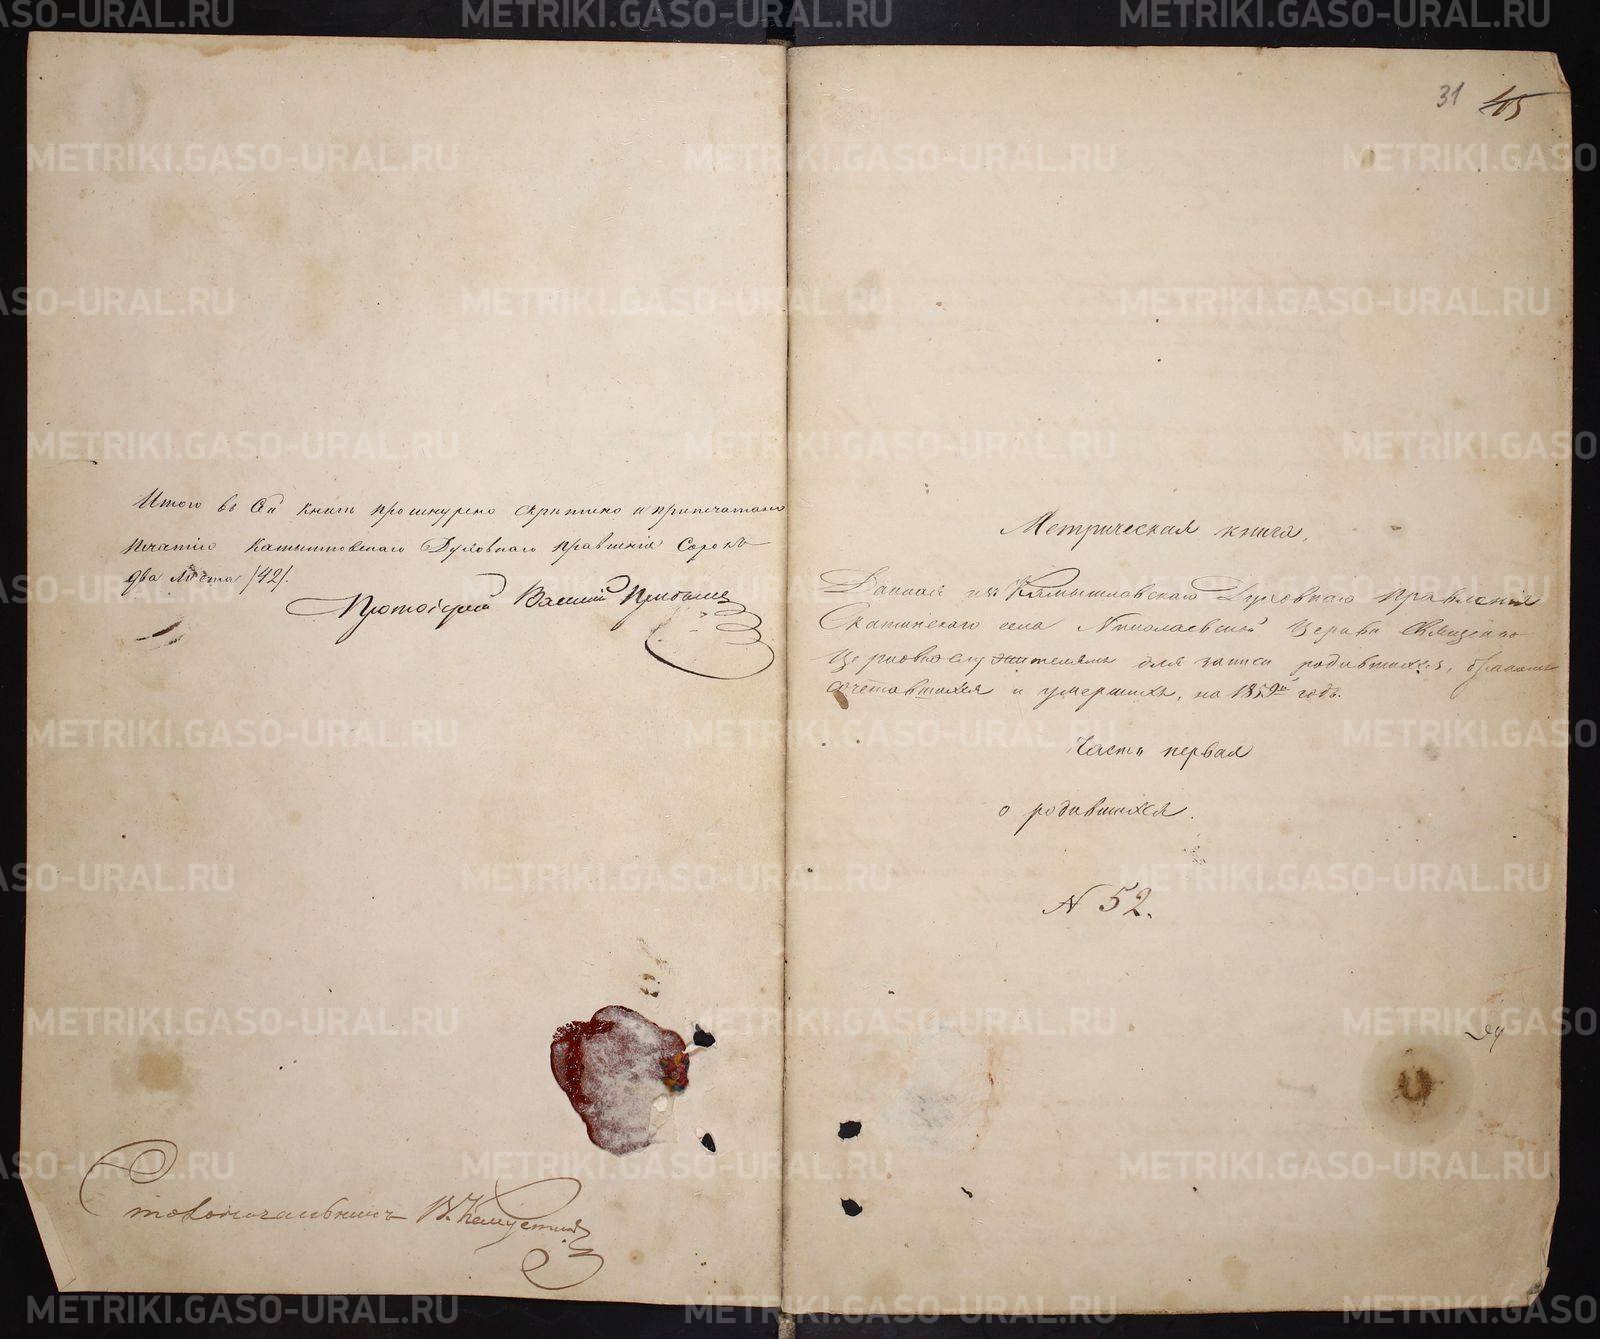 Итого въ сей книгѣ прошнурено скрѣплено и припечатано
печатію Камышловскаго Духовнаго Правленія Сорокъ
два листа /42/.
Протоіерей Василій
Столоначальникъ В.
31 45
Метрическая книга,
Данная изъ Камышловскаго Духовнаго Правленія
Скатинскаго села Николаевской Церкви Священно
церковнослужителямъ для записи родившихся, бракомъ
сочетавшихся и умершихъ, на 1859й годъ.
Часть первая
о родившихся.
N 52.
METRIKI.GASO-URAL.RU